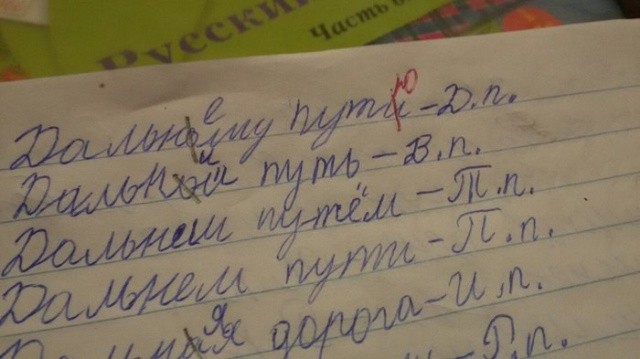 Русский
Часть
Дальнему пути ю - Д.п.
Дальний путь - В.п.
Дальнем путём - Т.п.
Дальнем пути - П.п.
Дальняя дорога - И.п.
Р.п.